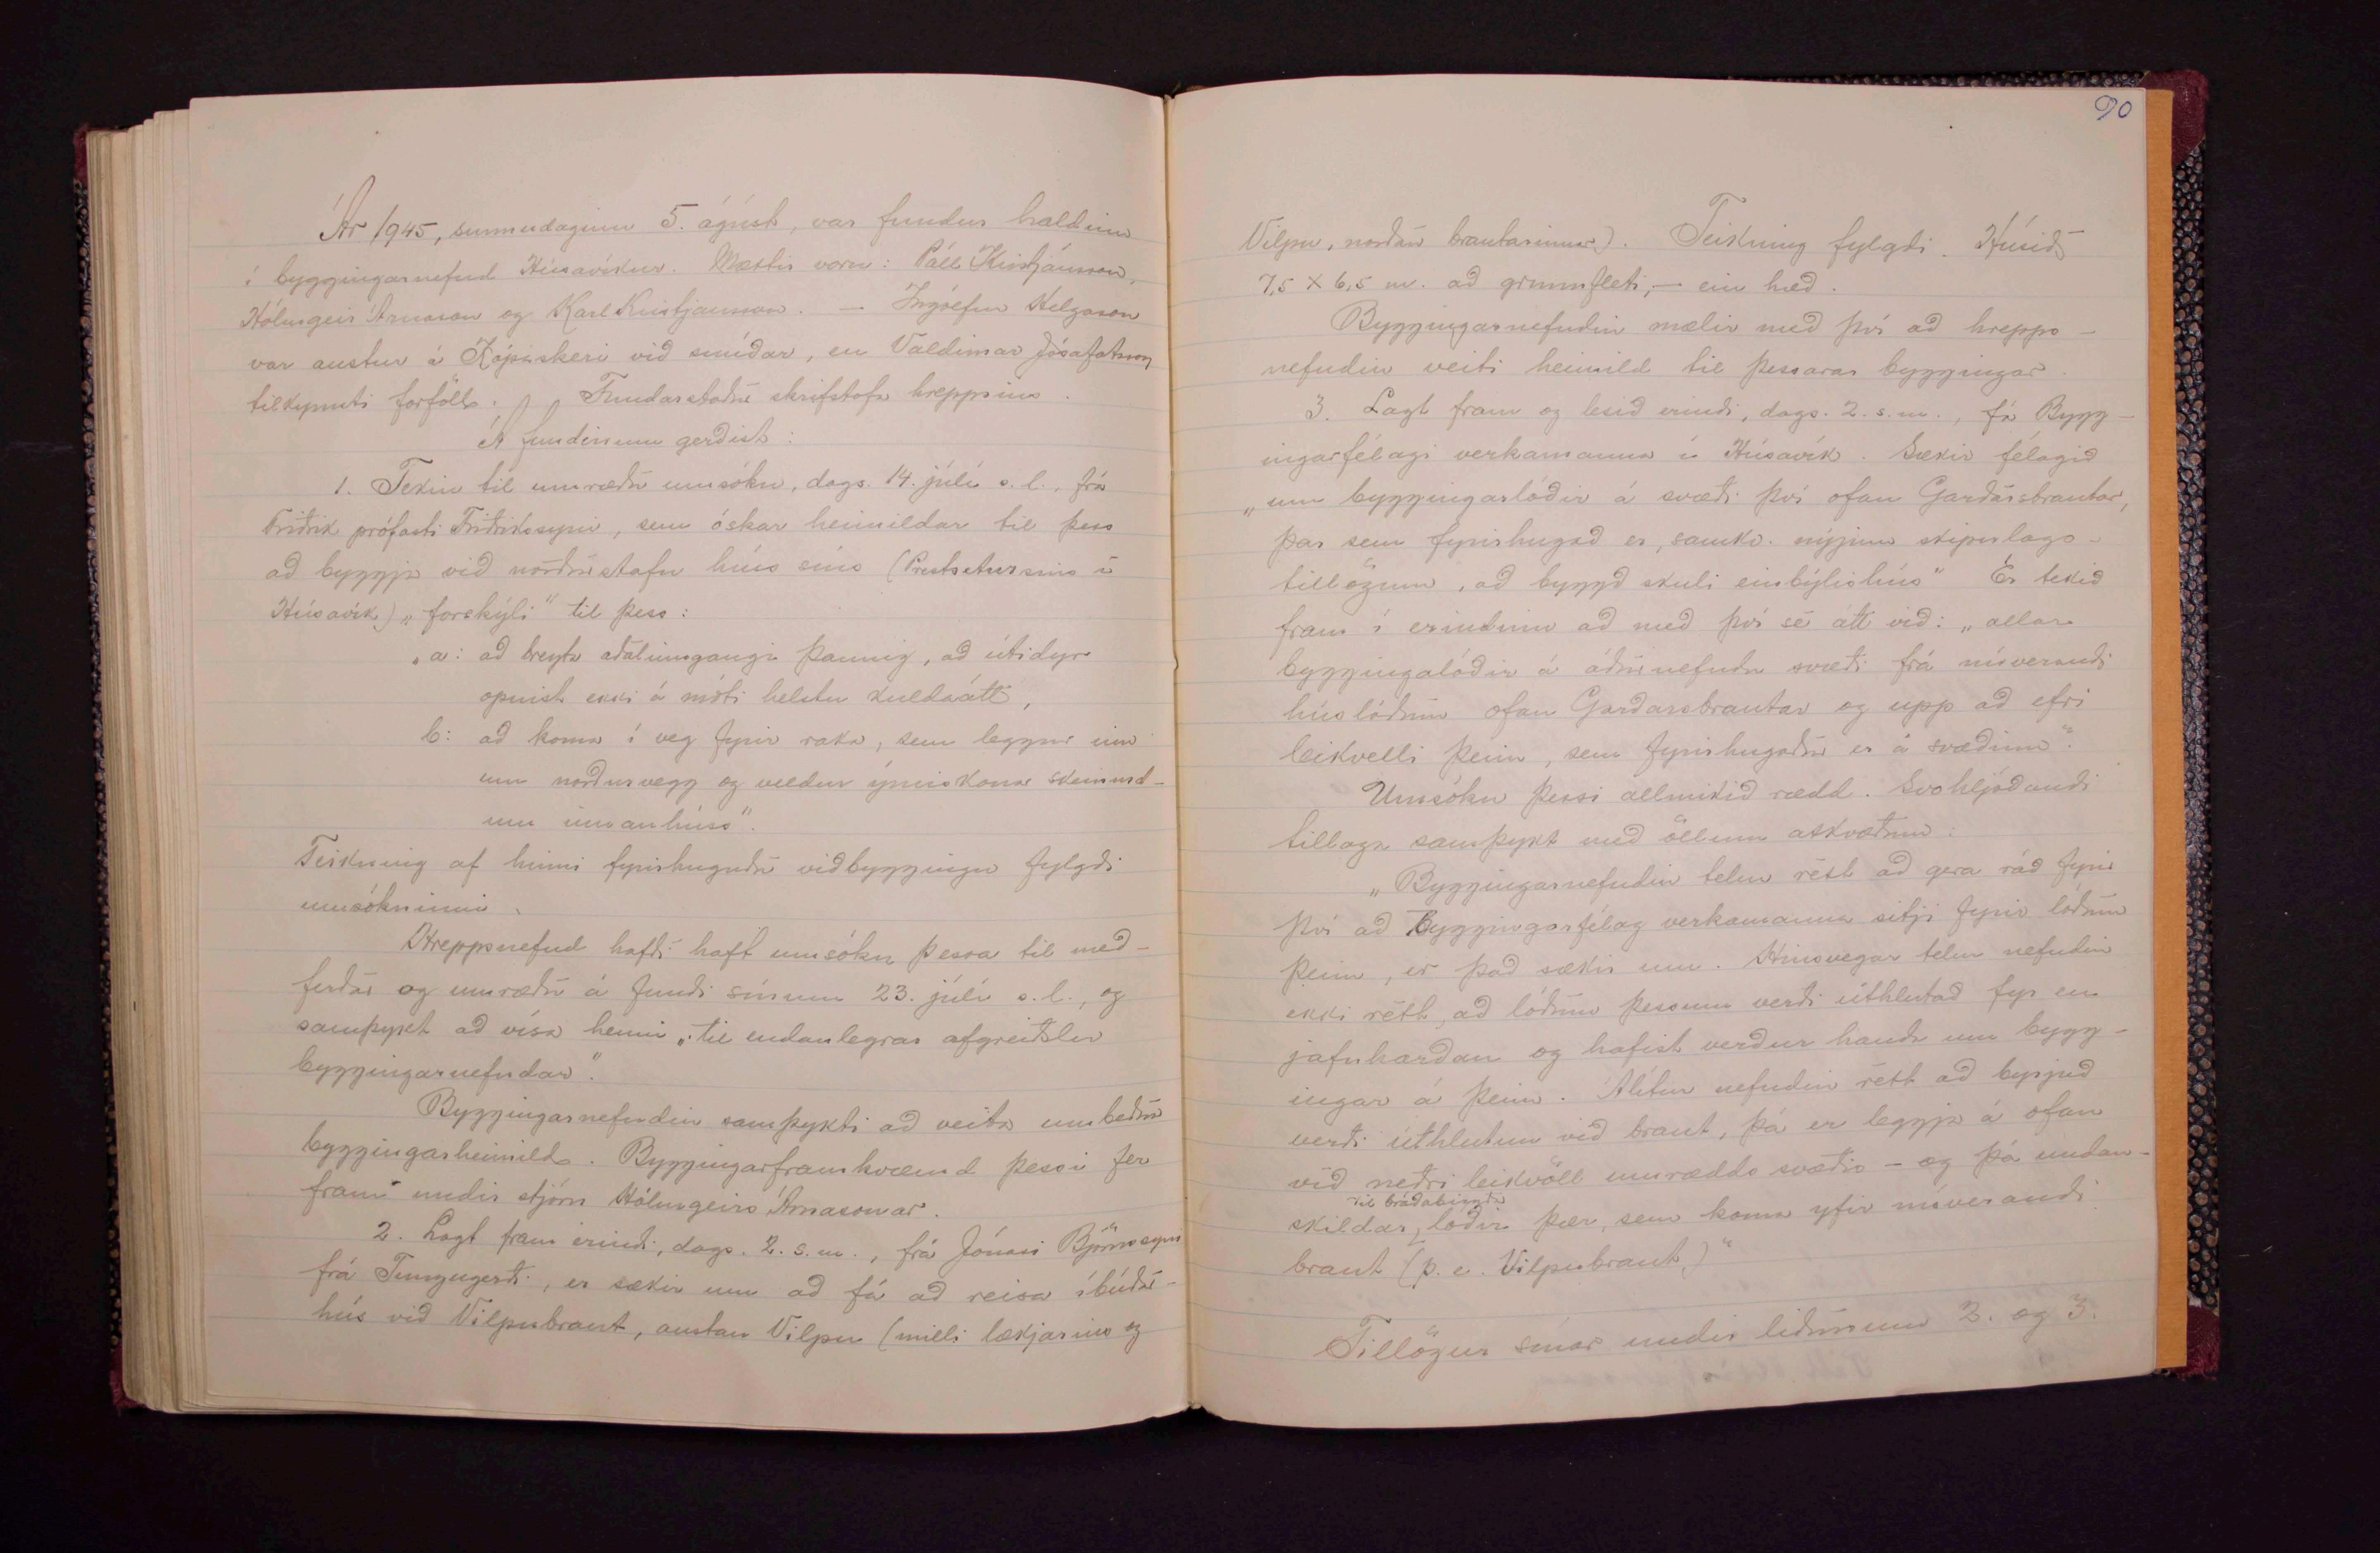 Ár 1945, sunnudaginn 5. ágúst, var fundur haldinn
í byggingarnefnd Húsavíkur. Mættir voru: Páll Kristjánsson,
Hólmgeir Árnason og Karl Kristjánsson. — Ingólfur Helgason
var austur á Kópaskeri við smíðar, en Valdimar Jósafatsson
tilkynnti forföll. Fundarstaður skrifstofa hreppsins.
Á fundinum gerðist:
1. Tekin til umræðu umsókn, dags. 14. júlí s.l., frá
Friðrik prófasti Friðrikssyni, sem óskar heimildar til þess
að byggja við norðurstafn húss síns (Prestseturs­ins í
Húsavík) „forskýli" til þess:
„a: að breyta aðalinngangi þannig, að útidyr
opnist ekki á móti helstu kuldaátt,
b: að koma í veg fyrir raka, sem leggur inn
um norðurvegg og veldur ýmiskonar skemmd-
um innanhúss".
Teikning af hinni fyrirhuguðu viðbyggingu fylgdi
umsókninni.
Hreppsnefnd hafði haft umsókn þessa til með-
ferðar og umræðu á fundi sínum 23. júlí s.l., og
samþykt að vísa henni „til endanlegrar afgreiðslu
byggingarnefndar".
Byggingarnefndin samþykti að veita umbeðna
byggingarheimild. Byggingarframkvæmd þessi fer
fram undir stjórn Hólmgeirs Árnasonar.
2. Lagt fram erindi, dags. 2. s.m., frá Jónasi Björnssyni
frá Tungugerði, er sækir um að fá að reisa íbúðar-
hús við Vilpubraut, austan Vilpu (milli lækjarins og
90
Vilpu, norðan brautarinnar). Teikning fylgdi. Húsið
7,5 x 6,5 m. að grunnfleti, — ein hæð.
Byggingarnefndin mælir með því að hrepps-
nefndin veiti heimild til þessarar byggingar.
3. Lagt fram og lesið erindi, dags. 2. s.m., fá Bygg-
ingarfélagi verkamanna í Húsavík. Sækir félagið
„um byggingarlóðir á svæði því ofan Garðarsbrautar,
þar sem fyrirhugað er, samkv. nýjum skipulags-
tillögum, að byggð skuli einbýlishús" Er tekið
fram í erindinu að með því sé átt við: „allar
byggingalóðir á áðurnefndu svæði frá núverandi
húslóðum ofan Garðarsbrautar og upp að efri
leikvelli þeim, sem fyrirhugaður er á svæðinu".
Umsókn þessi allmikið rædd. Svohljóðandi
tillaga samþykt með öllum atkvæðum:
„Byggingarnefndin telur rétt að gera ráð fyrir
því að Byggingarfélag verkamanna sitji fyrir lóðum
þeim, er það sækir um. Hinsvegar telur nefndin
ekki rétt, að lóðum þessum verði úthlutað fyr en
jafnharðan og hafist verður handa um bygg-
ingar á þeim. Álítur nefndin rétt að byrjuð
verði úthlutun við braut, þá er leggja á ofan
við neðri leikvöll umrædds svæðis – og þá undan-
til bráðabirgða
skildar, lóðir þær, sem koma yfir núverandi
braut (þ.e. Vilpubraut.)"
Tillögur sínar undir liðunum 2. og 3.